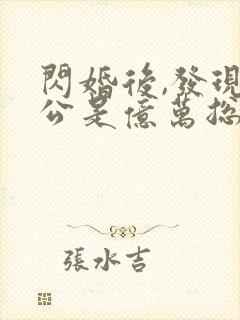 閃婚後,發現
公是億萬總
張水吉